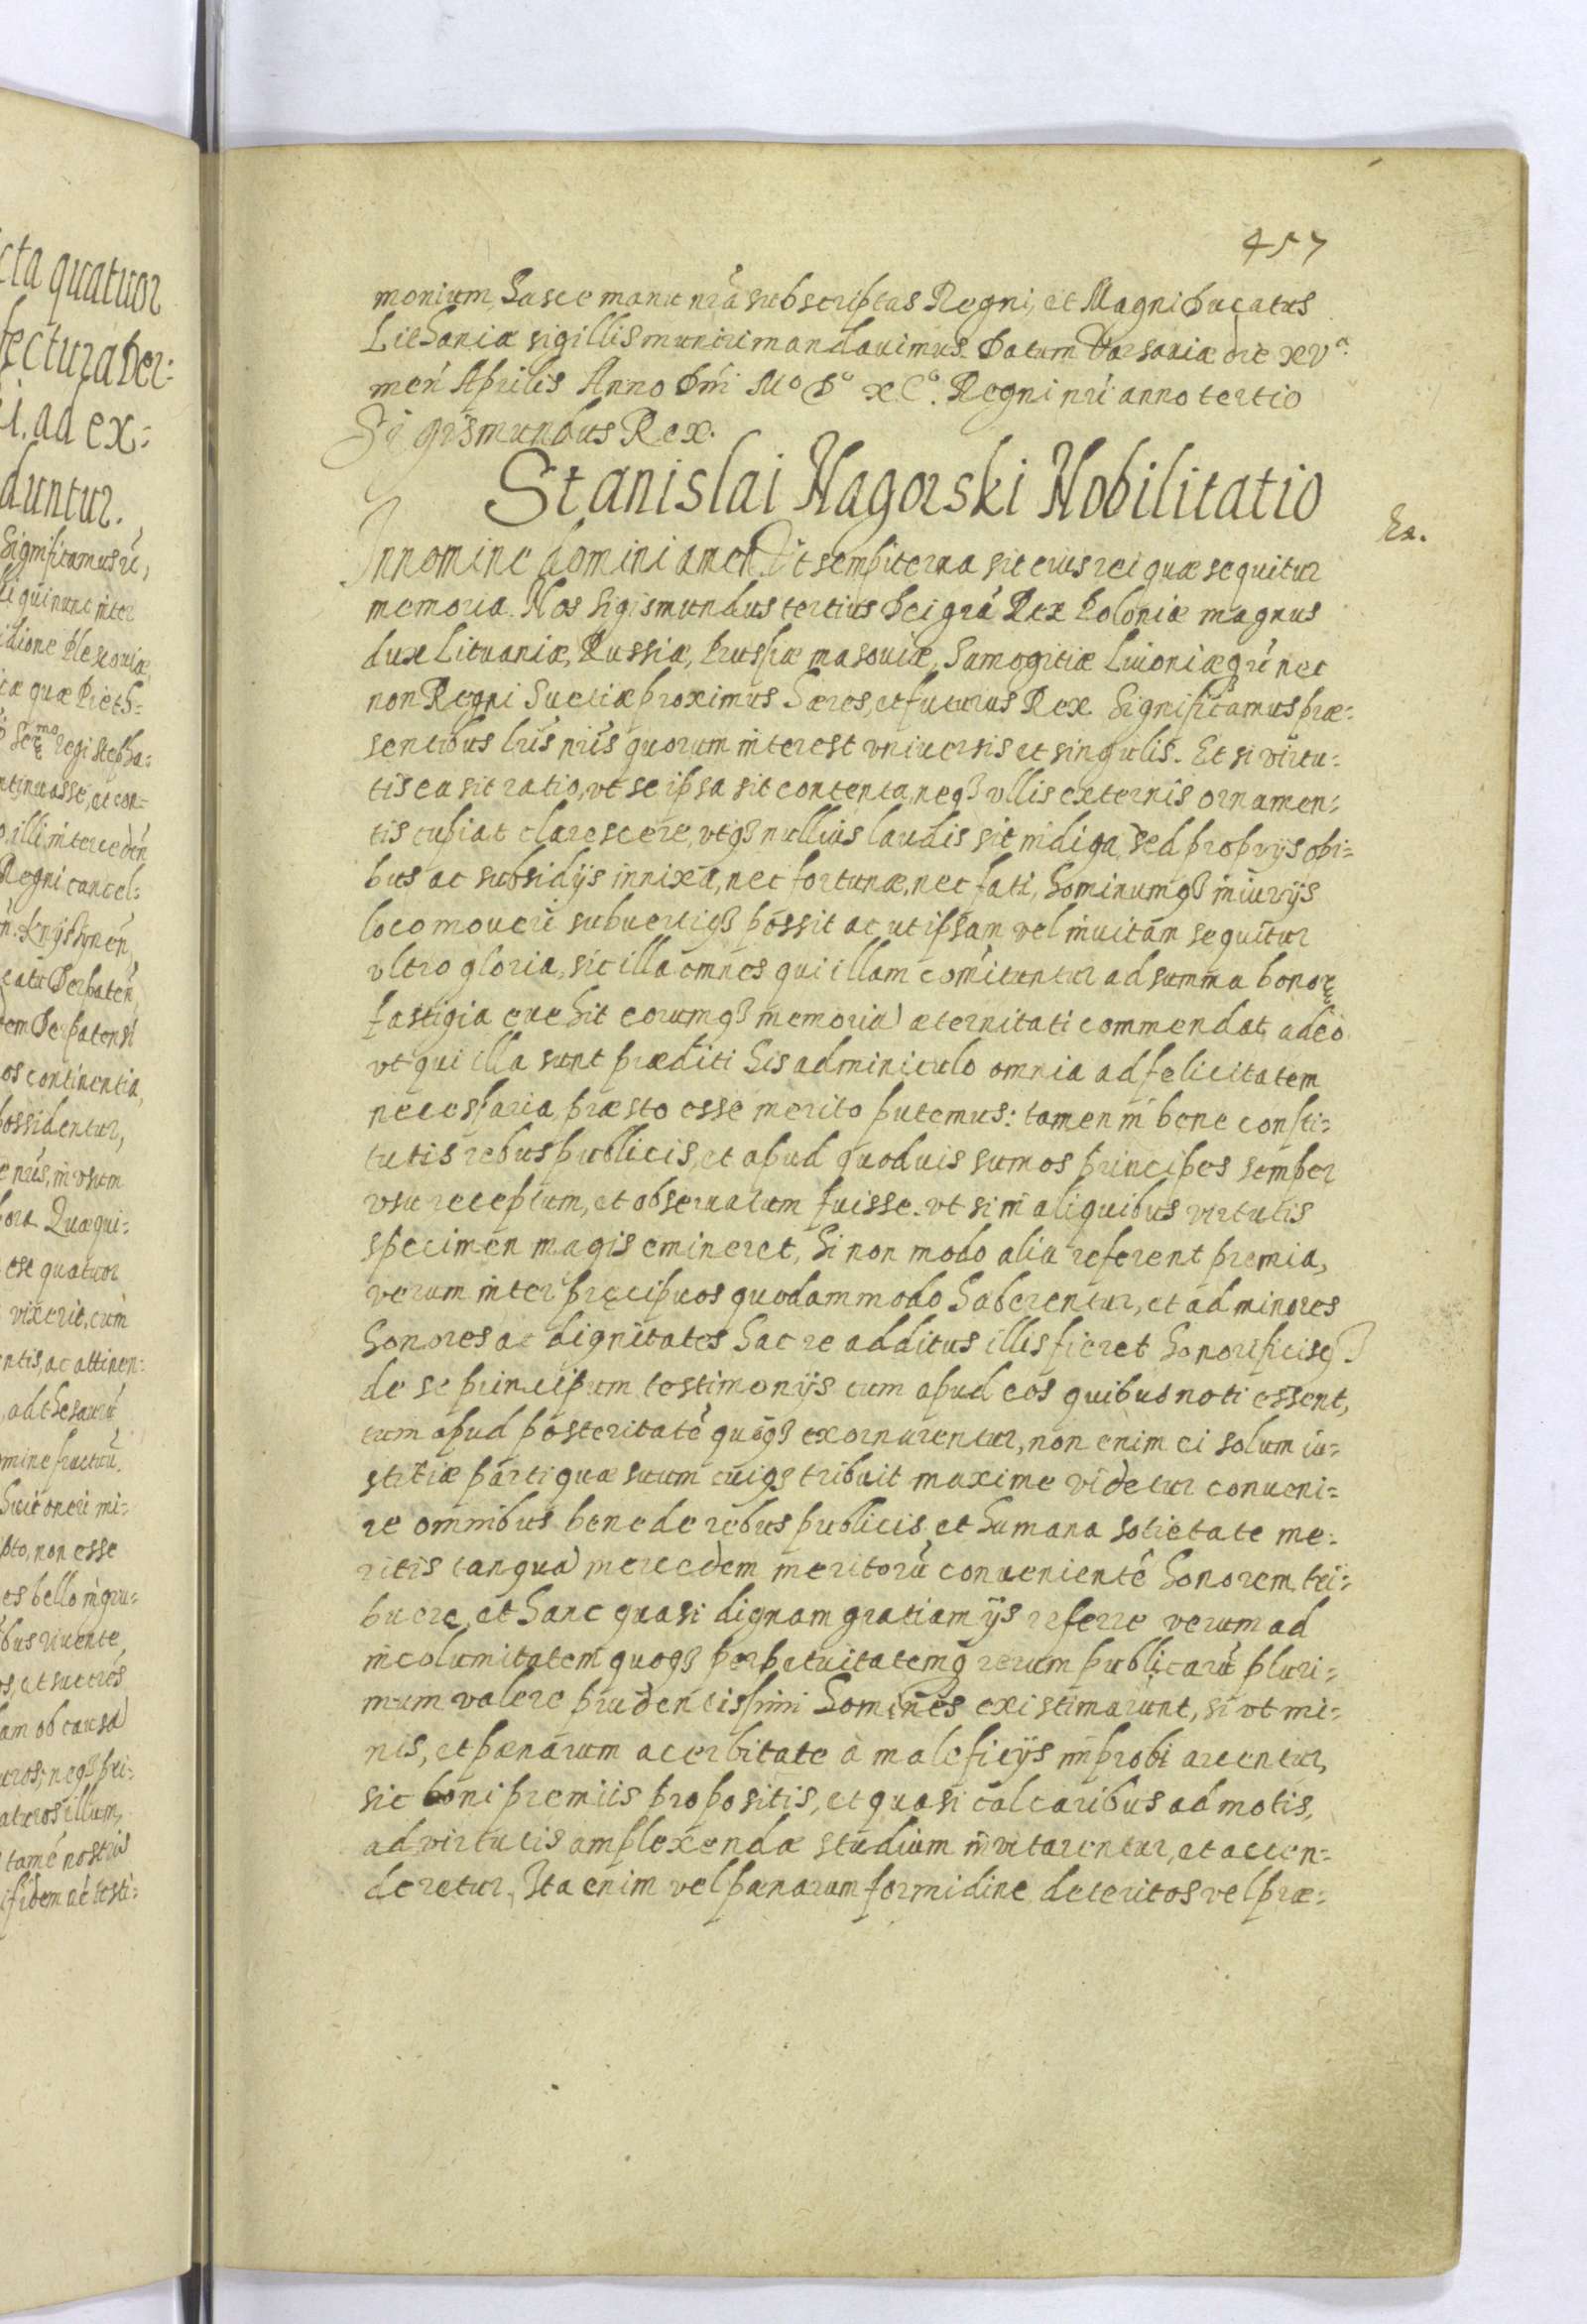 cta quatuor
fectura Der:
i. ad ex:
duntur.
Significamus
qui nunc inter
quæ
regi Stepha:
et con:
illi interceden
Regni cancel:
os continentia,
possidentur,
in usum
Quæ qui:
ese quatuor
vixerit, cum
ac attinen:
ad thesaurũ
mi:
non esse
es bello ingru:
et succes
am ob causa
neqȝ
illum,
tamẽ nostris
fidem
457
monium hasce manu nrã subscriptas Regni, et Magni Ducatus
Lithaniæ sigillis muniri mandauimus. Datum Varsauiæ die xvª.
men Aprilis Anno Dni Mº Dº xCº. Regni nri anno tertio
Sigismundus Rex.
Stanislai Nagorski Nobilitatio
Ex.
In nomine domini amen Vt sempiterna sit eius rei quæ sequitur
memoria. Nos Sigismundus tertius Dei gra Rex Poloniæ magnus
dux Lituaniæ, Russiæ, Prussiæ masouiæ, Samogitiæ Liuoniæq; nec
non Regni Sueciæ proximus hæres, et futurus Rex. Significamus præ:
sentibus lris nris quorum interest vniuersis et singulis. Et si virtu:
tis ea sit ratio, vt se ipsa sit contenta, neqȝ vllis externis ornamen:
tis cupiat clarescere, vtqȝ nullius laudis sit indiga, sed proprijs opi:
bus ac subsidijs innixa, nec fortunæ, nec fati, hominumqȝ iniurijs
loco moueri subuertiqȝ possit ac ut ipsam vel inuitam sequitur
vltro gloria, sic illa omnes qui illam comituntur ad summa bonor
fastigia euehit eorumqȝ memoria æternitati commendat adeo
vt qui illa sunt præditi his adminiculo omnia ad felicitatem
necessaria, præsto esse merito putemus: tamen in bene consti:
tutis rebus publicis, et apud quoduis sumos principes semper
vsu receptum, et obseruatum fuisse. vt si in aliquibus virtutis
specimen magis emineret, hi non modo alia referent premia,
verum inter pręcipuos quodammodo haberentur, et ad minores
honores ac dignitates hac re additus illis fieret honorificisqȝ
de se principum testimonijs cum apud eos quibus noti essent,
tum apud posteritatẽ quoqȝ exornarentur, non enim ei solum iu:
stitiæ parti quæ suum cuiqȝ tribuit maxime videtur conueni:
re omnibus bene de rebus publicis et humana societate me:
ritis tanqua mercedem meritorũ convenientẽ honorem tri:
buere, et hanc quasi dignam gratiam ijs referre verum ad
incolumitatem quoqȝ perpetuitatemq̃ rerum publicarũ pluri:
mum valere prudentissimi homines existimarunt, si vt mi:
nis, et pænarum acerbitate à maleficijs improbi arcentur,
sic boni premiis propositis, et quasi calcaribus admotis,
ad virtutis amplexendæ studium inuitarentur, et accen:
deretur. Ita enim vel pænarum formidine deteritos vel præ: